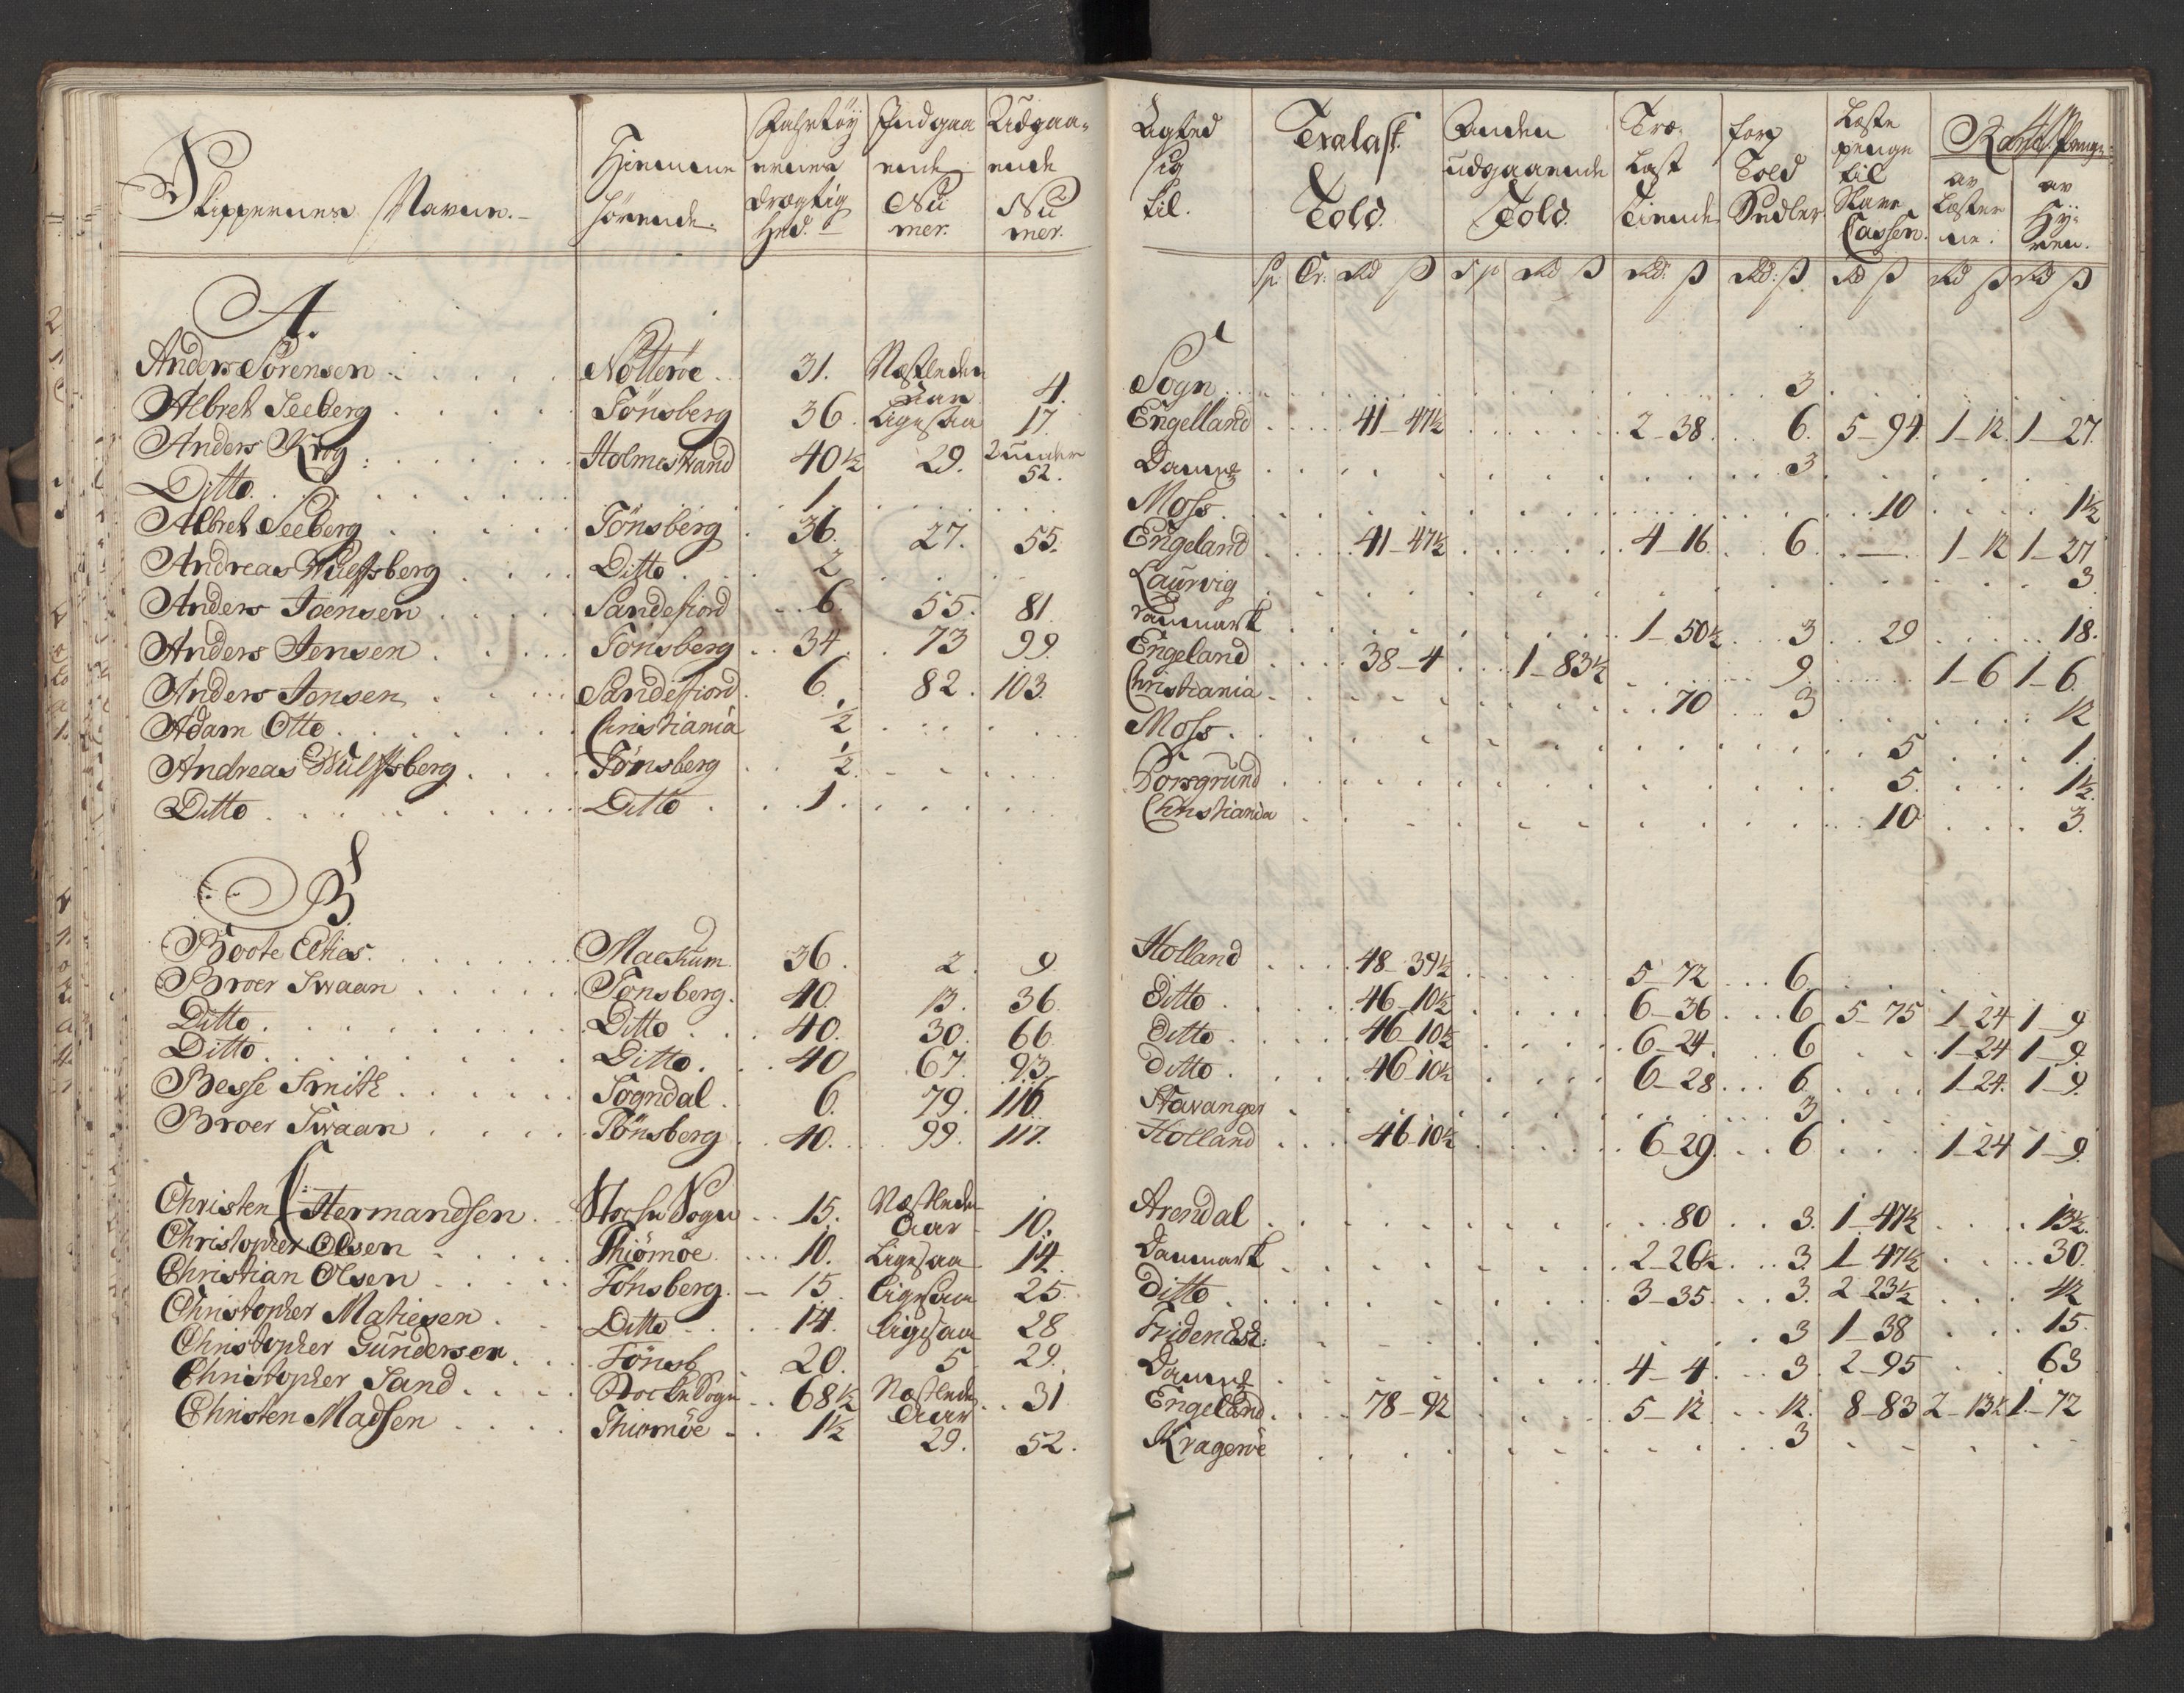 Skippernes Navne.
Hiemme hörende.
Fahrtöy ernes Drægtig hed.
Indgaa ende Nu mer.
Udgaa- ende Nu mer.
Agted sig til.
Trælast Told.
Anden udgaaende Told.
Træ- Last Tiende
for Told Sedler.
Læste penge til Slave Cassen.
av Læster ne.
av Hy- ren.
Sp. Tr. Rd ß Rd ß Rd: ß Rd: ß Rd ß Rd ß Rd ß
A.
Anders Sörensen Nötteröe 31. Næstleden Aar 4. Sogn 3
Albret Seeberg Tönsberg 36 Ligesaa 17. Engelland 41-47½ 2-38 6. 5-94. 1-12. 1-27.
Anders Krog Holmestrand 40½ 29. 52. Danmk 3
Ditto 1 Moss 10 1½
Albret Seeberg Tönsberg 36. 27. 55. Engeland 41-47½ 4-16. 6. 1-12 1-27
Andreas Wulfsberg Ditto 2 Laurvig 3
Anders Joensen Sandefiord 6 55. 81. Danmark 1-50½ 3 29 18.
Anders Jensen Tönsberg 34. 73 99 Engeland 38-4 1-83½ 9. 1-6 1-6
Anders Jonsen Sandefiord 6. 82. 103. Christiania 70 3 12
Adam Otto Christiania ½ Moss 5 1.
Andreas Wulfsberg Tönsberg ½ Porsgrund 5. 1½
Ditto Ditto 1. Christiania 10 3.
B
Boote Elties. Mackum 36. 2 9 Holland 48-39½ 5-72 6.
Broer Swaan Tönsberg. 40. 13. 36. Ditto 46-10½ 6-36 6 5-75 1-24 1-9
Ditto Ditto 40. 30. 66. Ditto 46-10½ 6-24 6 1-24 1-9
Ditto Ditto. 40 67. 93. Ditto 46-10½ 6-28 6 1-24. 1-9.
Besse Smith Sogndal 6. 79. 116. Stavanger 3
Broer Swaan Tönsberg 40. 99. 117. Holland 46-10½ 6-29. 6 1-24 1-9.
C
Christen Hermandsen Stocke Sogn 15. Næstleden Aar 10. Arendal 80 3. 1-47½ 13½
Christopher Olsen Thiömöe 10. Ligesaa 14. Danmark 2-26½ 3. 1-47½ 30.
Christian Olsen Tönsberg. 15 Ligesaa 25. Ditto 3-35. 3. 2-23½ 42
Christopher Mathiesen Ditto 14. Ligesaa 28 3 1-38 15.
Christopher Gundersen Tönsb 20. 5 29. Danmk 4-4 3. 2-95 63
Christopher Sand Stocke Sogn 68½ Næstleden Aar 31 Engeland 78-92 5-12 12. 8-83 2-13½ 1-72
Christen Madsen Thiomöe 1½ 29. 52. Krageröe 3